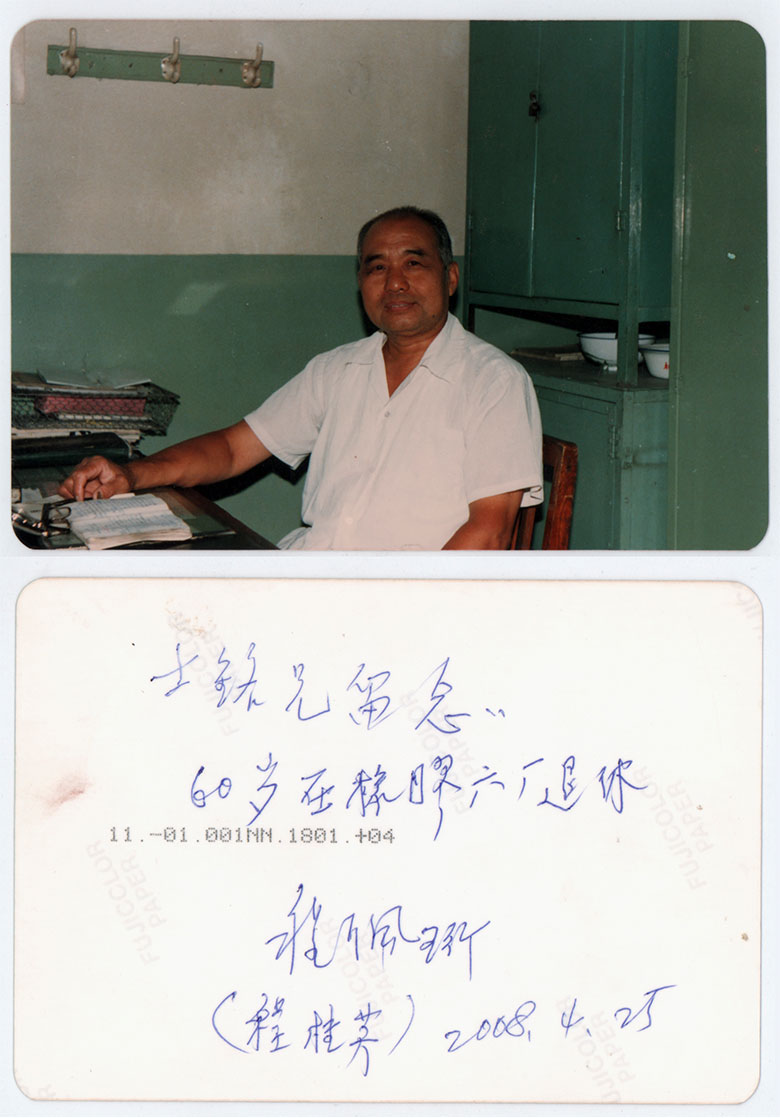 士铭兄留念：
60岁在橡膠六厂退休
11.-01.001NN.1801.+04
程佩珩
（程桂英）2008.4.25
FUJICOLOR PAPER
FUJICOLOR PAPER
FUJICOLOR PAPER
FUJICOLOR PAPER
FUJICOLOR PAPER